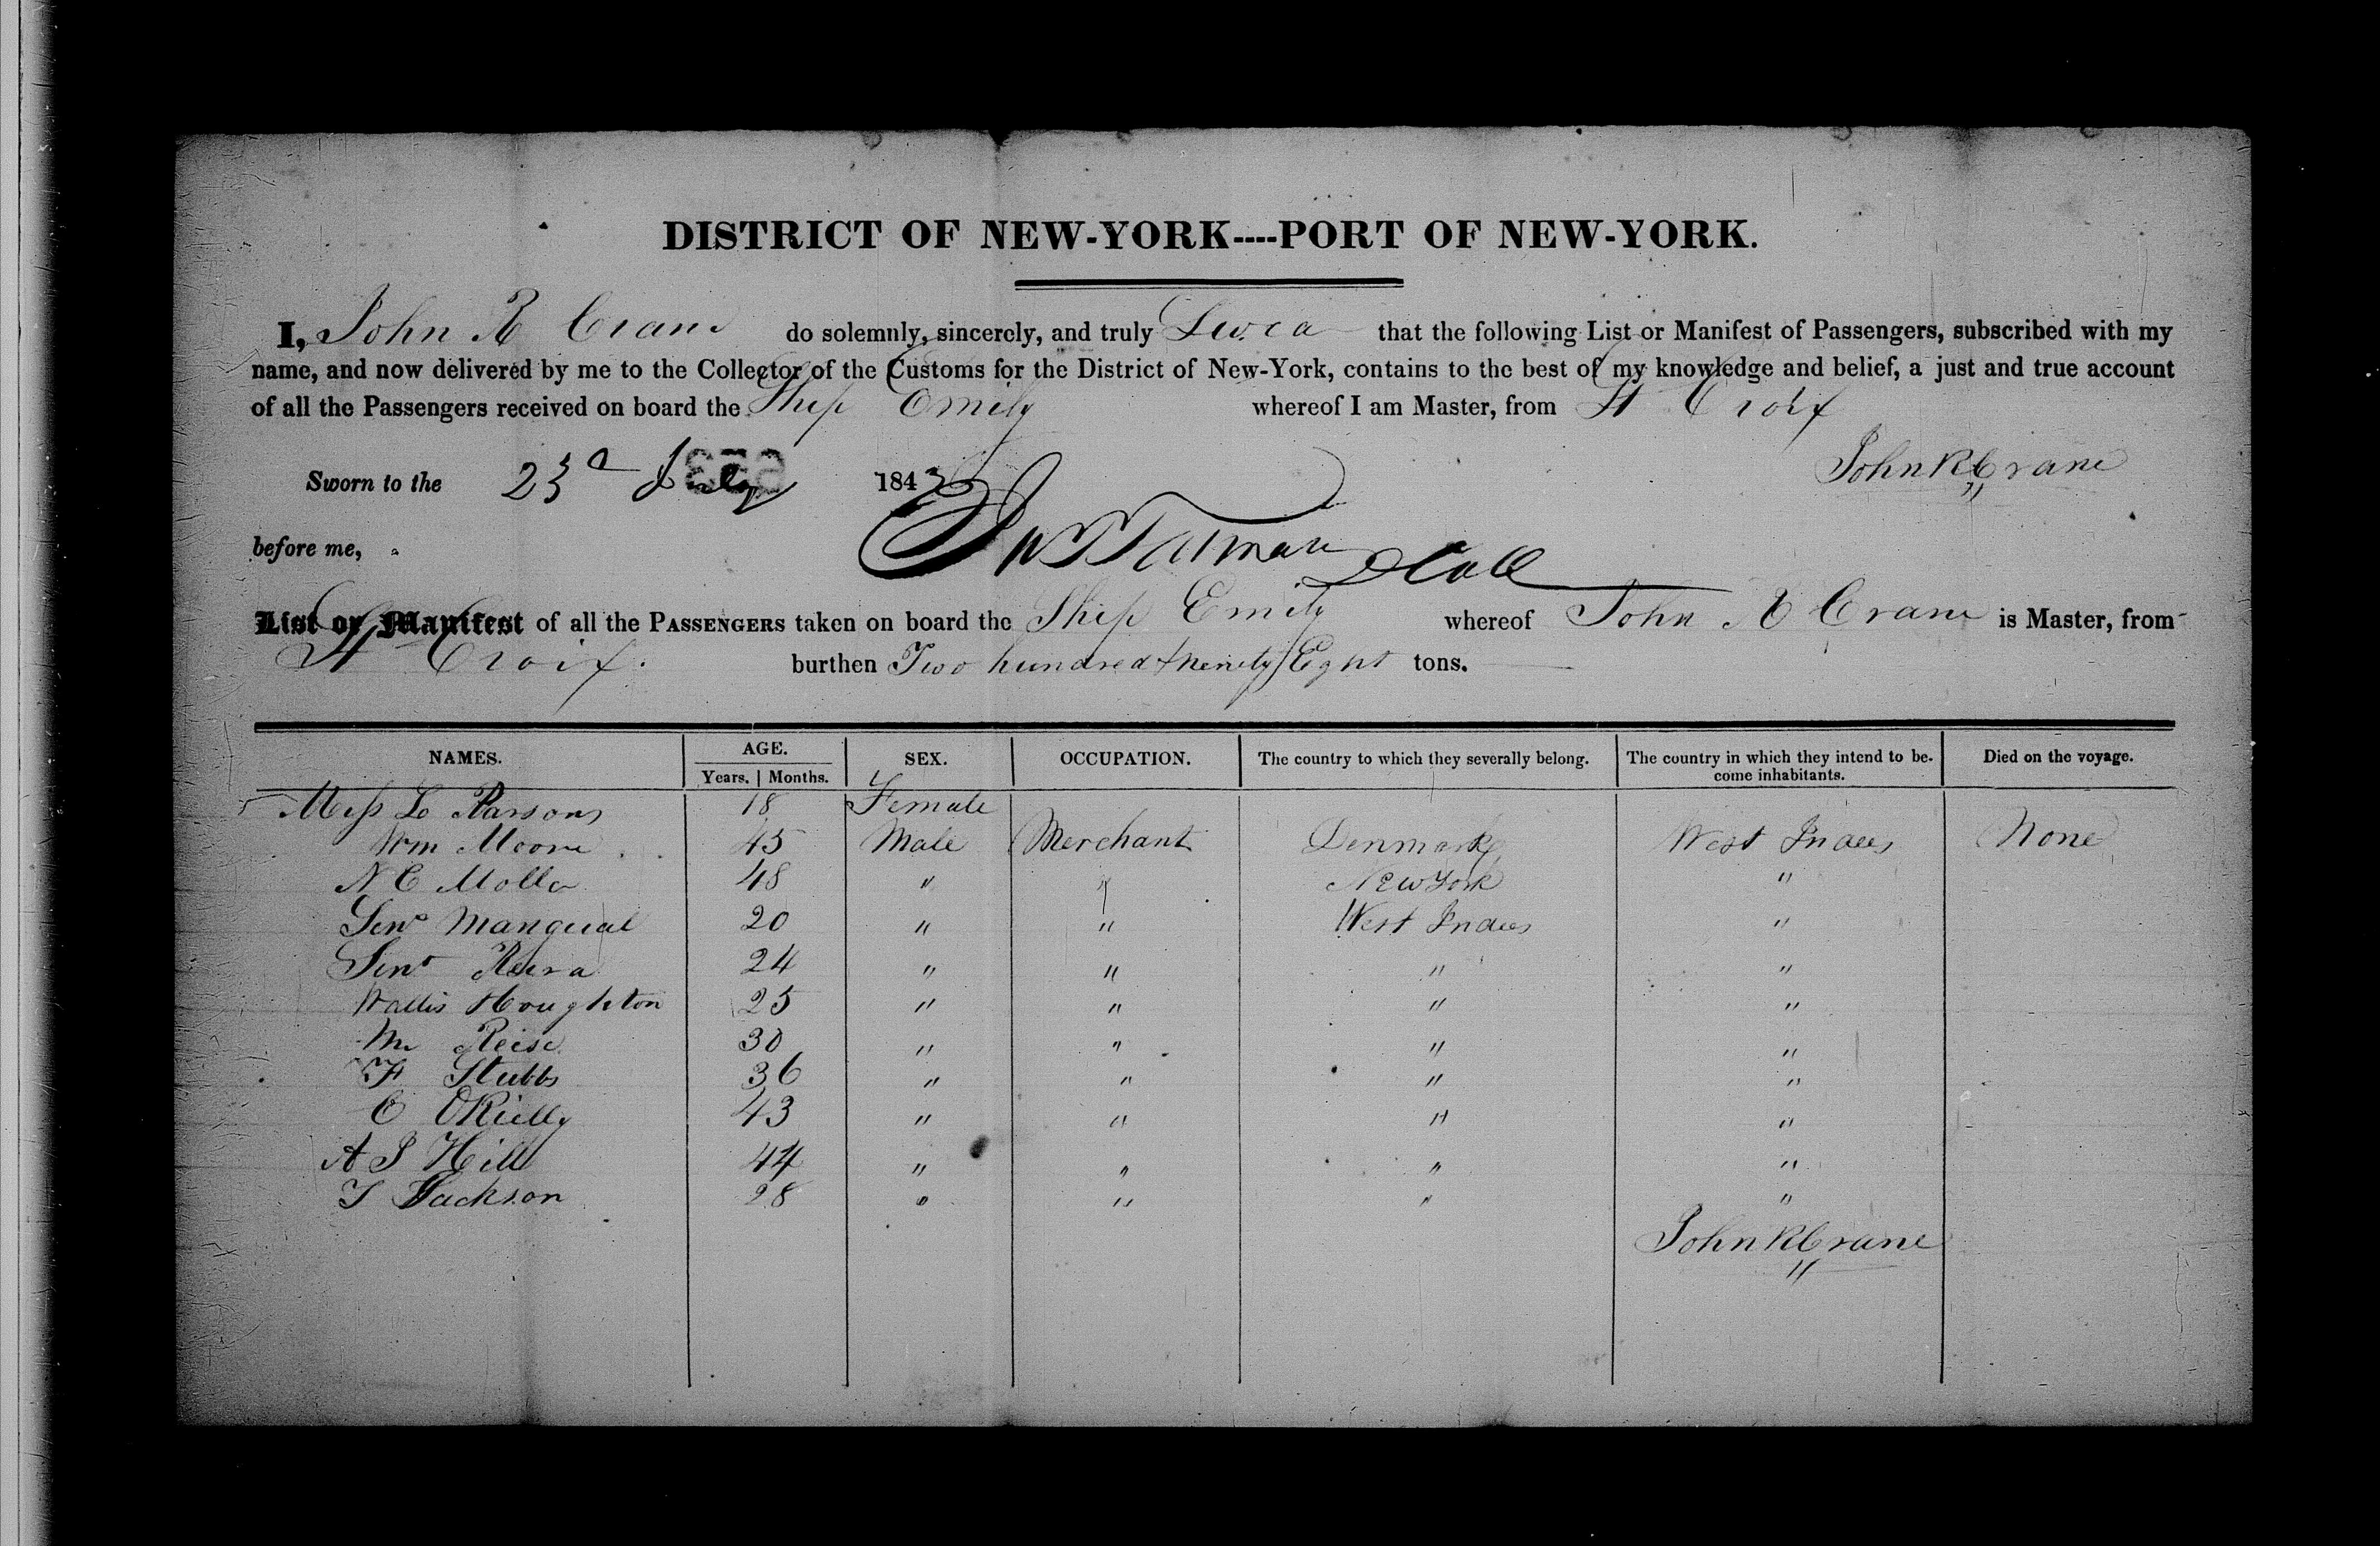 DISTRICT OF NEW-YORK----PORT OF NEW-YORK.
I, John R Crane do solemnly, sincerely, and truly Swea that the following List or Manifest of Passengers, subscribed with my
name, and now delivered by me to the Collector of the Customs for the District of New-York, contains to the best of my knowledge and belief, a just and true account
of all the Passengers received on board the Ship Emily whereof I am Master, from St Croix
John R Crane
Sworn to the 23d 1843
before me,
List or Manifest of all the PASSENGERS taken on board the Ship Emily whereof John R Crane is Master, from
St Croix. burthen Two hundred & Ninety Eight tons.
NAMES. AGE. SEX. OCCUPATION. The country to which they severally belong. The country in which they intend to be- Died on the voyage.
Years. | Months. come inhabitants.
Miss L Parsons 18 Female
Wm Moore 45 Male Merchant Denmark West Indies None
N C Moller 48 " " New York "
Senr Mangual 20 " " West Indies "
Senr 24 " " " "
Wallis Houghton 25 " " " "
Mr Reise 30 " " " "
F Stubbs 36 " " " "
C OReilly 43 " " " "
A S Hill 44 " " " "
T Jackson 28 " " " "
John R Crane